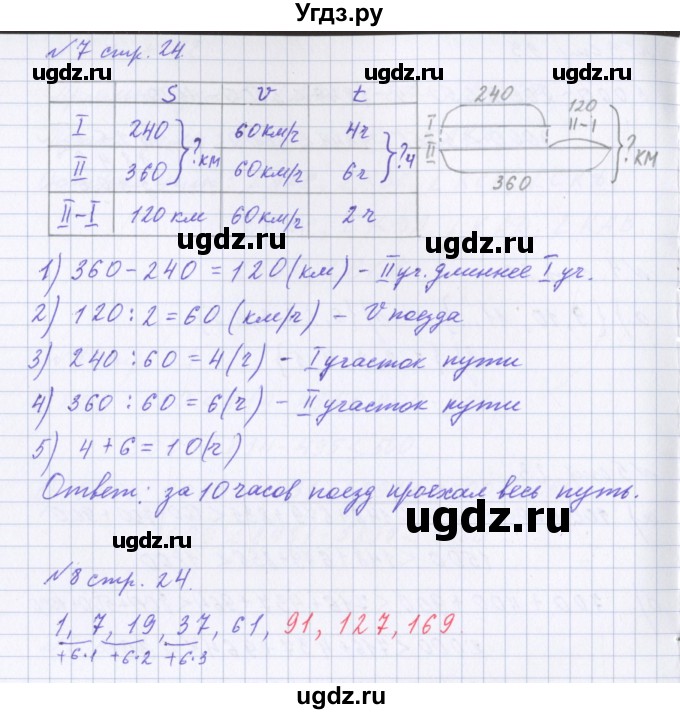 Угдз.ру
№7 стр. 24.
ugdz.ru ugdz.ru ugdz.ru
S v t
I 240 60км/ч 4ч
II 360 60км/ч 6ч
? км ? ч
II-I 120 км 60км/ч 2 ч
240
120
I II-I
II ? км
360
ugdz.ru ugdz.ru
1) 360-240=120(км) - II уч. длиннее I уч.
2) 120:2=60 (км/ч) - V поезда
ugdz.ru ugdz.ru
3) 240:60=4(ч) - I участок пути
4) 360:60=6(ч) - II участок пути
ugdz.ru
5) 4+6=10(ч)
Ответ: за 10 часов поезд проехал весь путь.
ugdz.ru
ugdz.ru
№8 стр. 24.
ugdz.ru ugdz.ru
1, 7, 19, 37, 61, 91, 127, 169
+6·1 +6·2 +6·3
ugdz.ru ugdz.ru
ugdz.ru